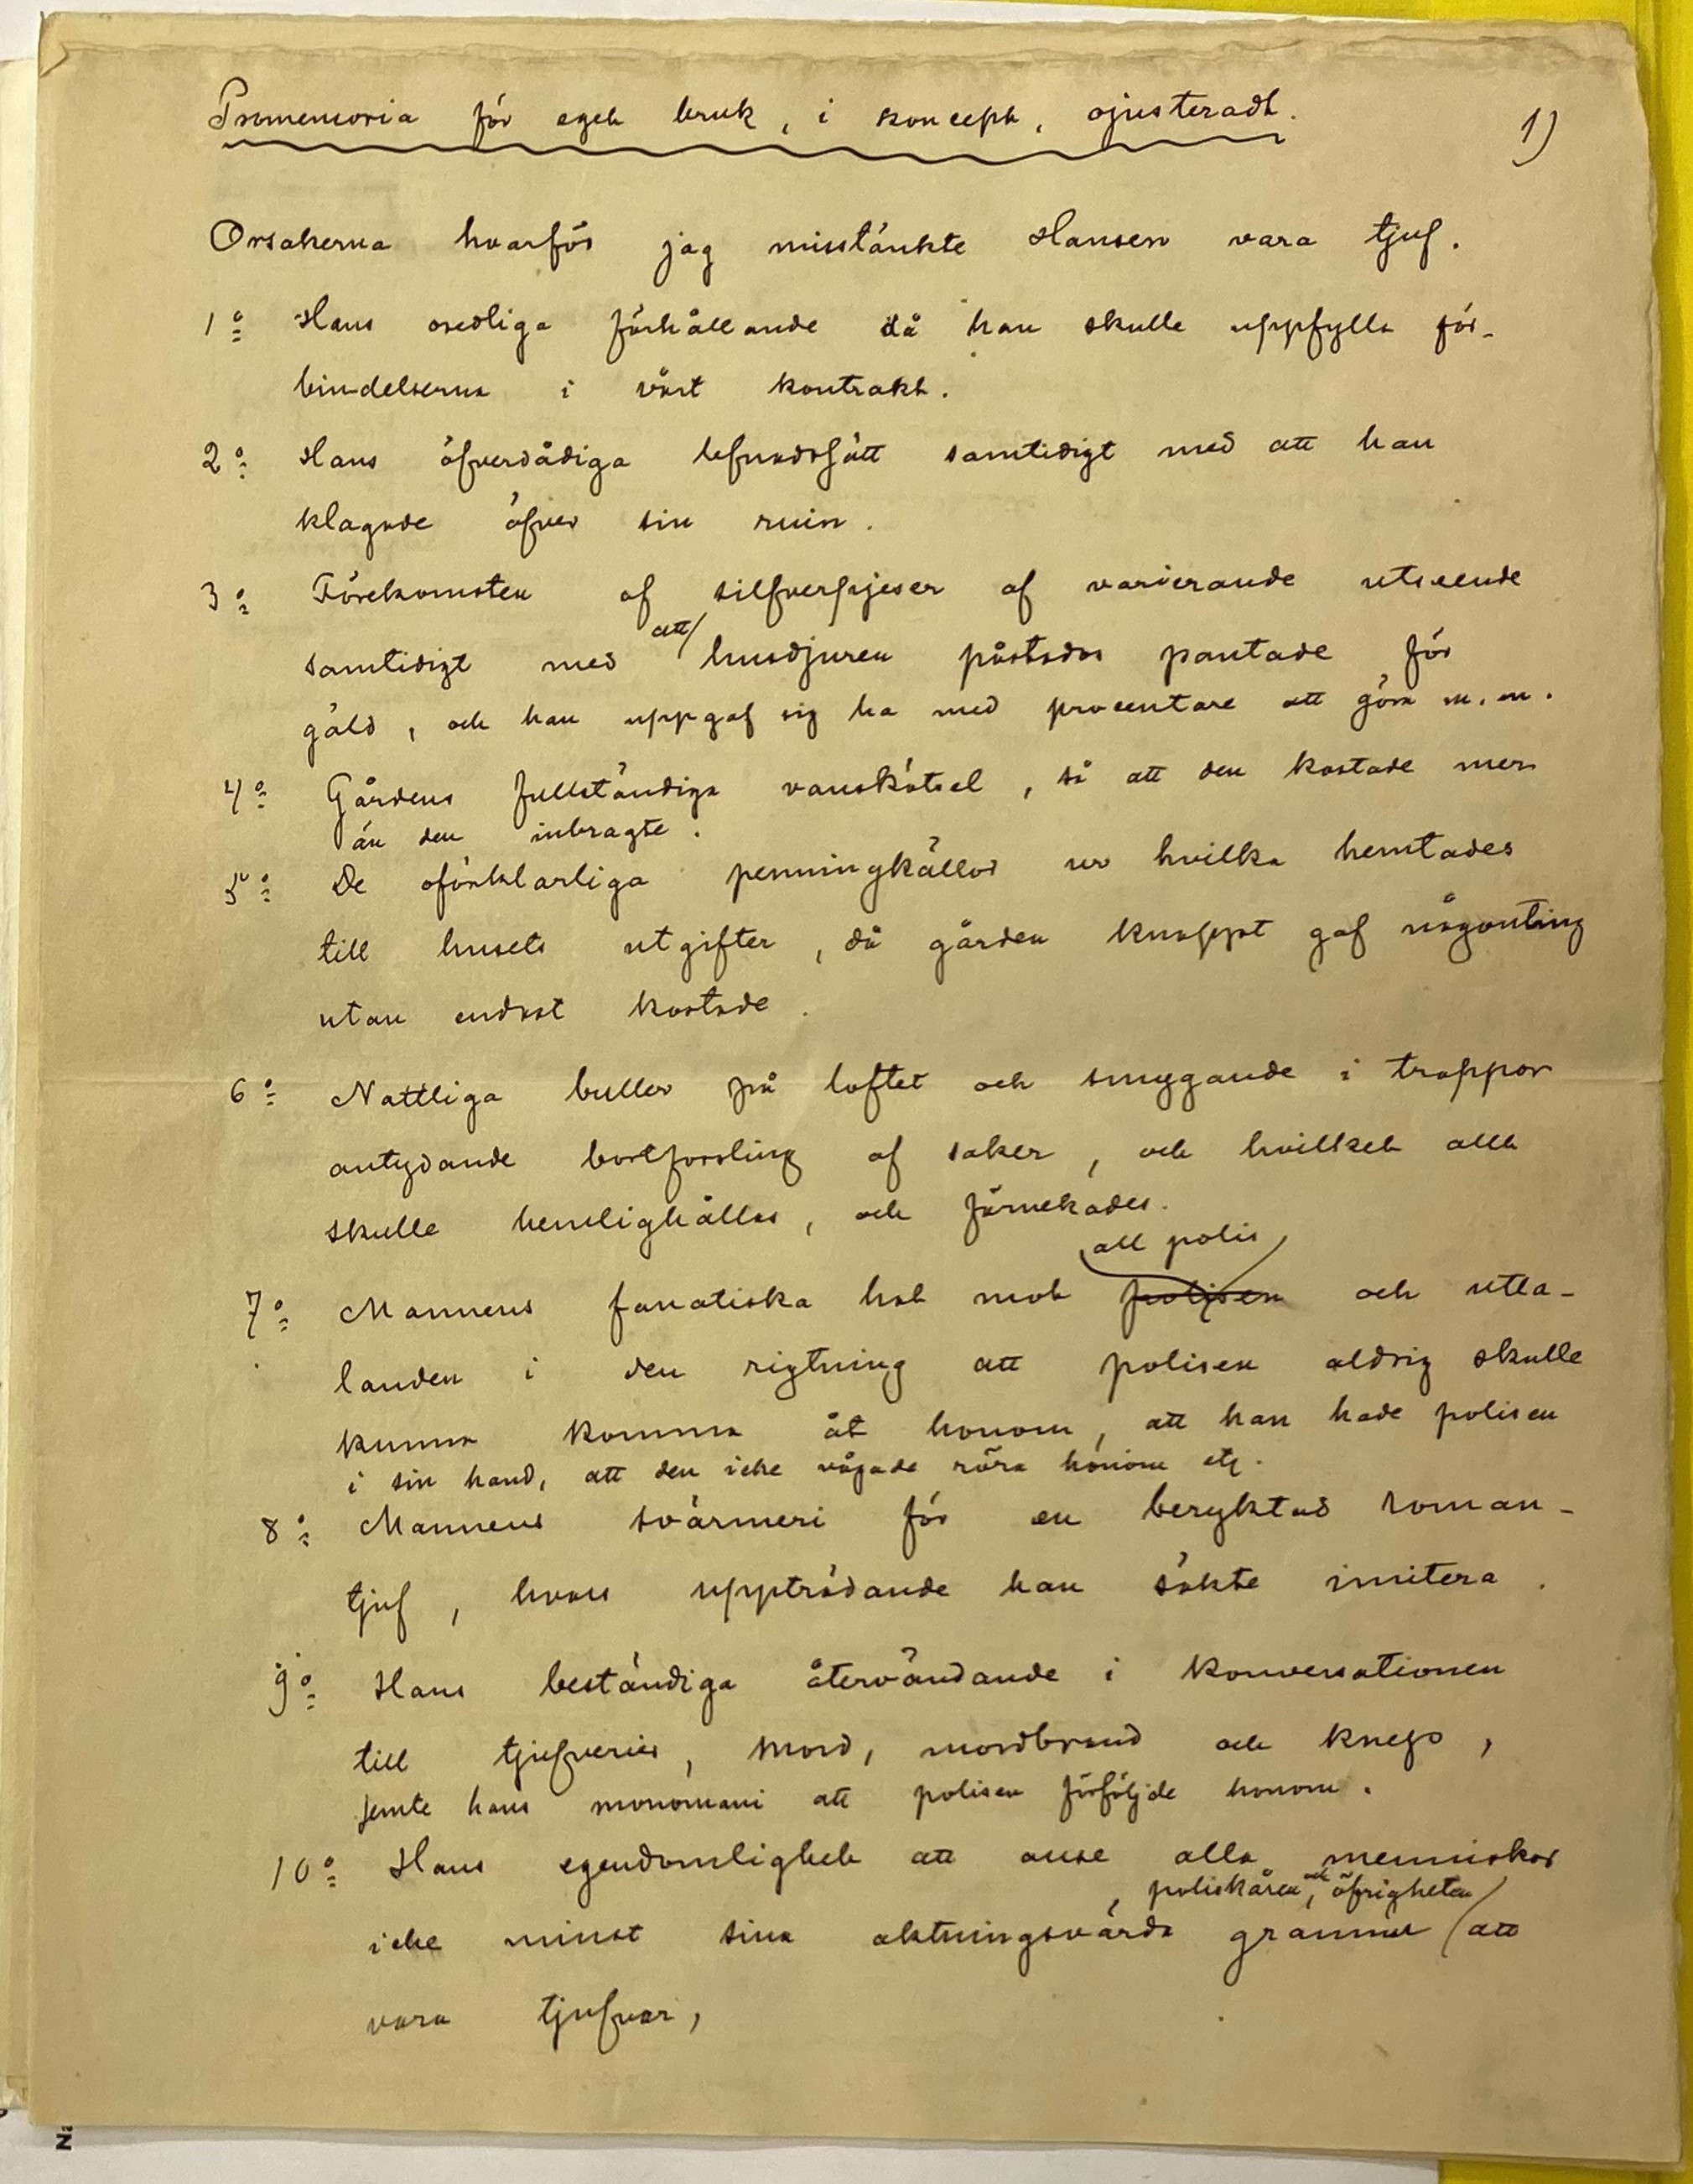 Promemoria för eget bruk, i koncept, ojusteradt.
1)
Orsakerna hvarför jag misstänkte Hansen vara tjuf.
1º Hans osedliga förhållande då han skulle uppfylla för-
bindelserna i vårt kontrakt.
2º Hans öfverdådiga lefnadssätt samtidigt med att han
klagade öfver sin ruin.
3º Förekomsten af silfverpjeser af varierande utseende
samtidigt med att husdjuren påstodos pantade för
gäld, och han uppgaf sig ha med procentare att göra m.m.
4º Gårdens fullständiga vanskötsel, så att den kostade mer
än den inbragte.
5º De oförklarliga penningkällor ur hvilka hemtades
till husets utgifter, då gården knappt gaf någonting
utan endast kostade.
6º Nattliga buller på loftet och smygande i trappor
antydande bortforsling af saker, och hvilket allt
skulle hemlighållas, och förnekades.
all polis
7º Mannens fanatiska hat mot polisen och utta-
landen i den rigtning att polisen aldrig skulle
kunna komma åt honom, att han hade polisen
i sin hand, att den icke vågade röra honom etc.
8º Mannens svärmeri för en beryktad roman-
tjuf, hvars uppträdande han sökte imitera.
9º Hans beständiga återvändande i konversationen
till tjufverier, mord, mordbrand och knep,
jemte hans monomani att polisen förföljde honom.
10º Hans egendomlighet att anse alla menniskor
, poliskåren, och öfrigheten
icke minst sina aktningsvärda grannar att
vara tjufvar,